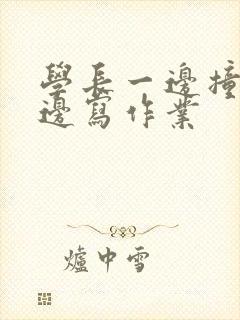 學長一邊撞
邊寫作業
爐中雪